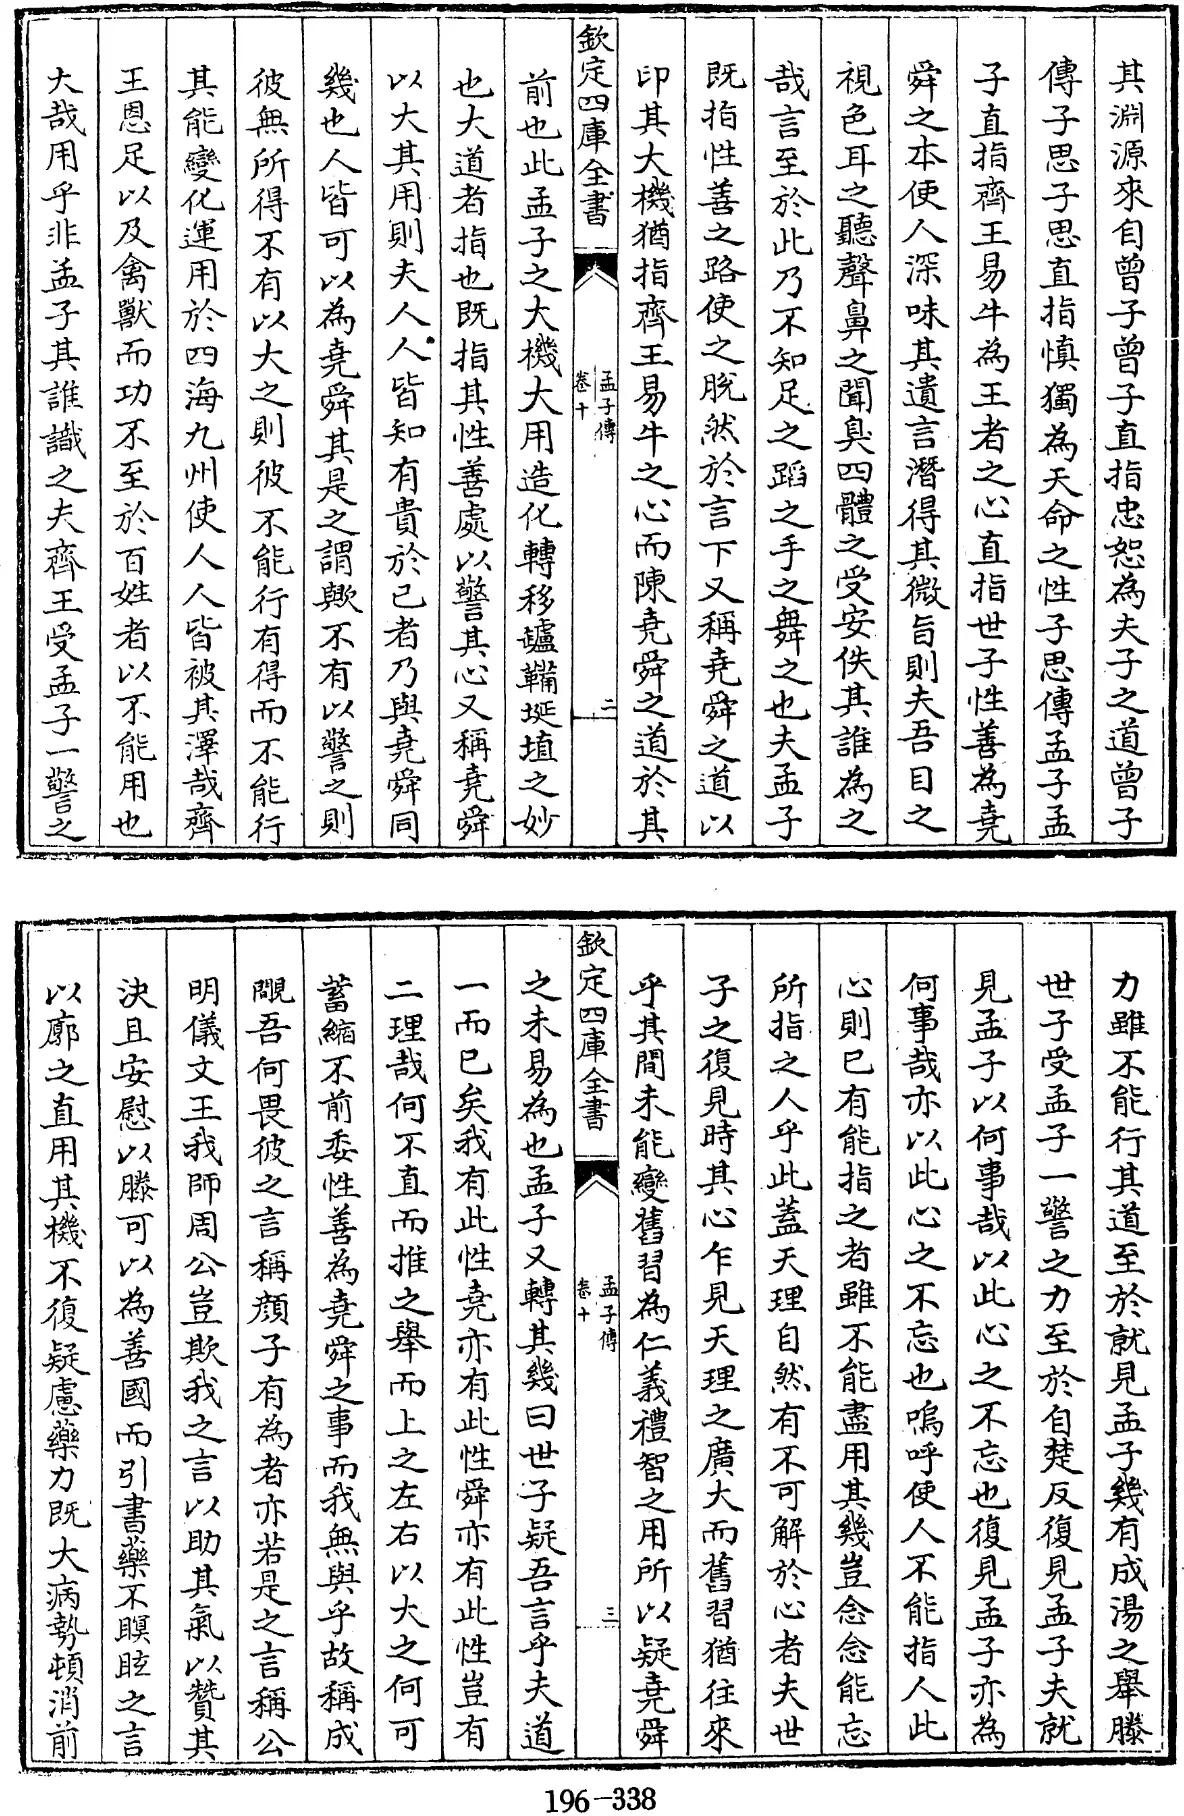 其淵源來自曾子曾子直指忠恕為夫子之道曾子
傳子思子思直指慎獨為天命之性子思傳孟子孟
子直指齊王易牛為王者之心直指世子性善為堯
舜之本使人深味其遺言潛得其微旨則夫吾目之
視色耳之聽聲鼻之聞臭四體之受安佚其誰為之
哉言至於此乃不知足之蹈之手之舞之也夫孟子
既指性善之路使之脫然於言下又稱堯舜之道以
印其大機猶指齊王易牛之心而陳堯舜之道於其
欽定四庫全書
孟子傳
卷十
二
前也此孟子之大機大用造化轉移鑪鞴埏埴之妙
也大道者指也既指其性善處以警其心又稱堯舜
以大其用則夫人人皆知有貴於己者乃與堯舜同
幾也人皆可以為堯舜其是之謂歟不有以警之則
彼無所得不有以大之則彼不能行有得而不能行
其能變化運用於四海九州使人人皆被其澤哉齊
王恩足以及禽獸而功不至於百姓者以不能用也
大哉用乎非孟子其誰識之夫齊王受孟子一警之
力雖不能行其道至於就見孟子幾有成湯之舉滕
世子受孟子一警之力至於自楚反復見孟子夫就
見孟子以何事哉以此心之不忘也復見孟子亦為
何事哉亦以此心之不忘也嗚呼使人不能指人此
心則已有能指之者雖不能盡用其幾豈念念能忘
所指之人乎此蓋天理自然有不可解於心者夫世
子之復見時其心乍見天理之廣大而舊習猶往來
乎其間未能變舊習為仁義禮智之用所以疑堯舜
欽定四庫全書
孟子傳
卷十
三
之未易為也孟子又轉其幾曰世子疑吾言乎夫道
一而已矣我有此性堯亦有此性舜亦有此性豈有
二理哉何不直而推之舉而上之左右以大之何可
蓄縮不前委性善為堯舜之事而我無與乎故稱成
覵吾何畏彼之言稱顏子有為者亦若是之言稱公
明儀文王我師周公豈欺我之言以助其氣以贊其
決且安慰以滕可以為善國而引書藥不瞑眩之言
以廓之直用其機不復疑慮藥力既大病勢頓消前
196-338